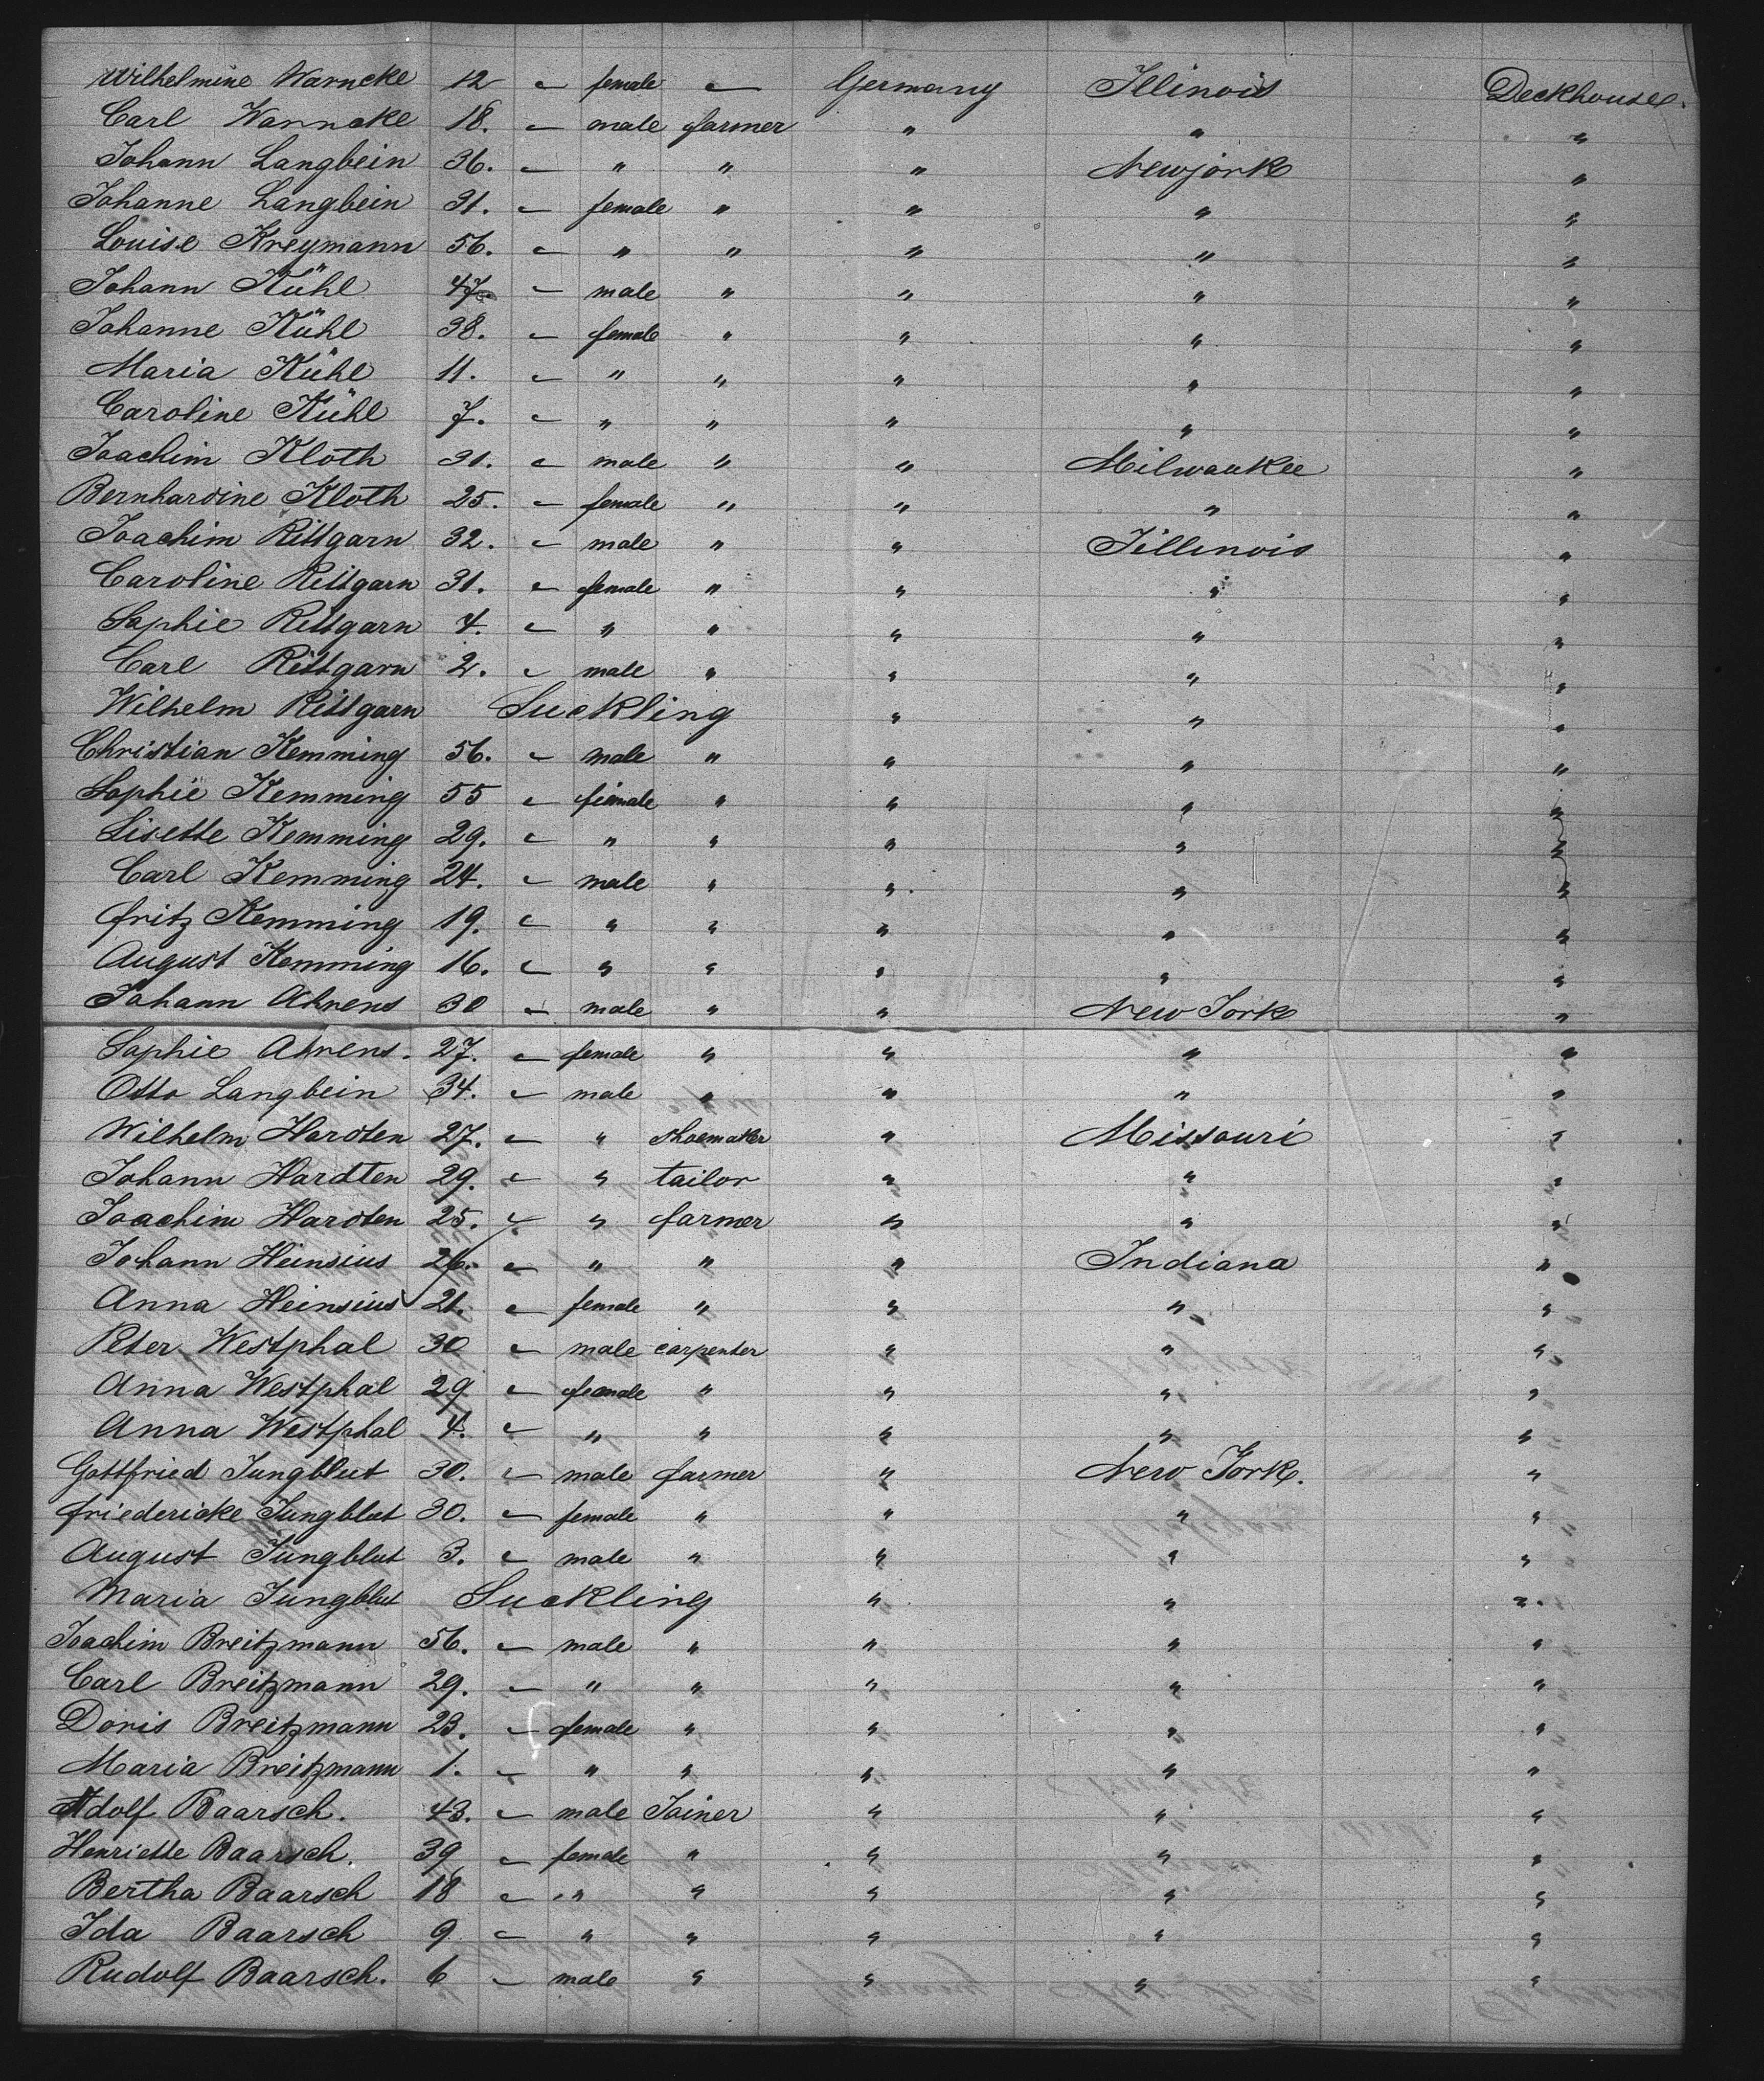 Wilhelmine Warncke 12 – female – Germany Illinois Deckhouse.
Carl Warncke 18. – male farmer " " "
Johann Langbein 36. – " " " Newjork "
Johanne Langbein 31. – female " " " "
Louise Kreymann 56. – " " " " "
Johann Kühl 47. – male " " " "
Johanne Kühl 38. – female " " " "
Maria Kühl 11. – " " " " "
Caroline Kühl 7. – " " " " "
Joachim Kloth 31. – male " " Milwaukee "
Bernhardine Kloth 25. – female " " " "
Joachim Rittgarn 32. – male " " Jillinois "
Caroline Rittgarn 31. – female " " " "
Sophie Rittgarn 4. – " " " " "
Carl Rittgarn 2. – male " " " "
Wilhelm Rittgarn Suckling " " "
Christian Kemming 56. – male " " " "
Sophie Kemming 55 – female " " " "
Lisette Kemming 29. – " " " " "
Carl Kemming 24. – male " " " "
Fritz Kemming 19. – " " " " "
August Kemming 16. – " " " " "
Johann Ahrens 30 – male " " New York "
Sophie Ahrens. 27. – female " " " "
Otto Langbein 34. – male " " " "
Wilhelm Hardten 27. – " shoemaker " Missouri "
Johann Hardten 29. – " tailor " " "
Joachim Hardten 25. – " farmer " " "
Johann Heinsius 26. – " " " Indiana "
Anna Heinsius 21. – female " " " "
Peter Westphal 30 – male carpenter " " "
Anna Westphal 29 – female " " " "
Anna Westphal 4. – " " " " "
Gottfried Jungblut 30. – male farmer " New York. "
Friedericke Jungblut 30. – female " " " "
August Jungblut 3. – male " " " "
Maria Jungblut Suckling " " "
Joachim Breitzmann 56. – male " " " "
Carl Breitzmann 29. – " " " " "
Doris Breitzmann 23. – female " " " "
Maria Breitzmann 1. – " " " " "
Adolf Baarsch. 43. – male Joiner " " "
Henriette Baarsch. 39 – female " " " "
Bertha Baarsch 18 – " " " " "
Ida Baarsch 9 – " " " " "
Rudolf Baarsch. 6 – male " " " "